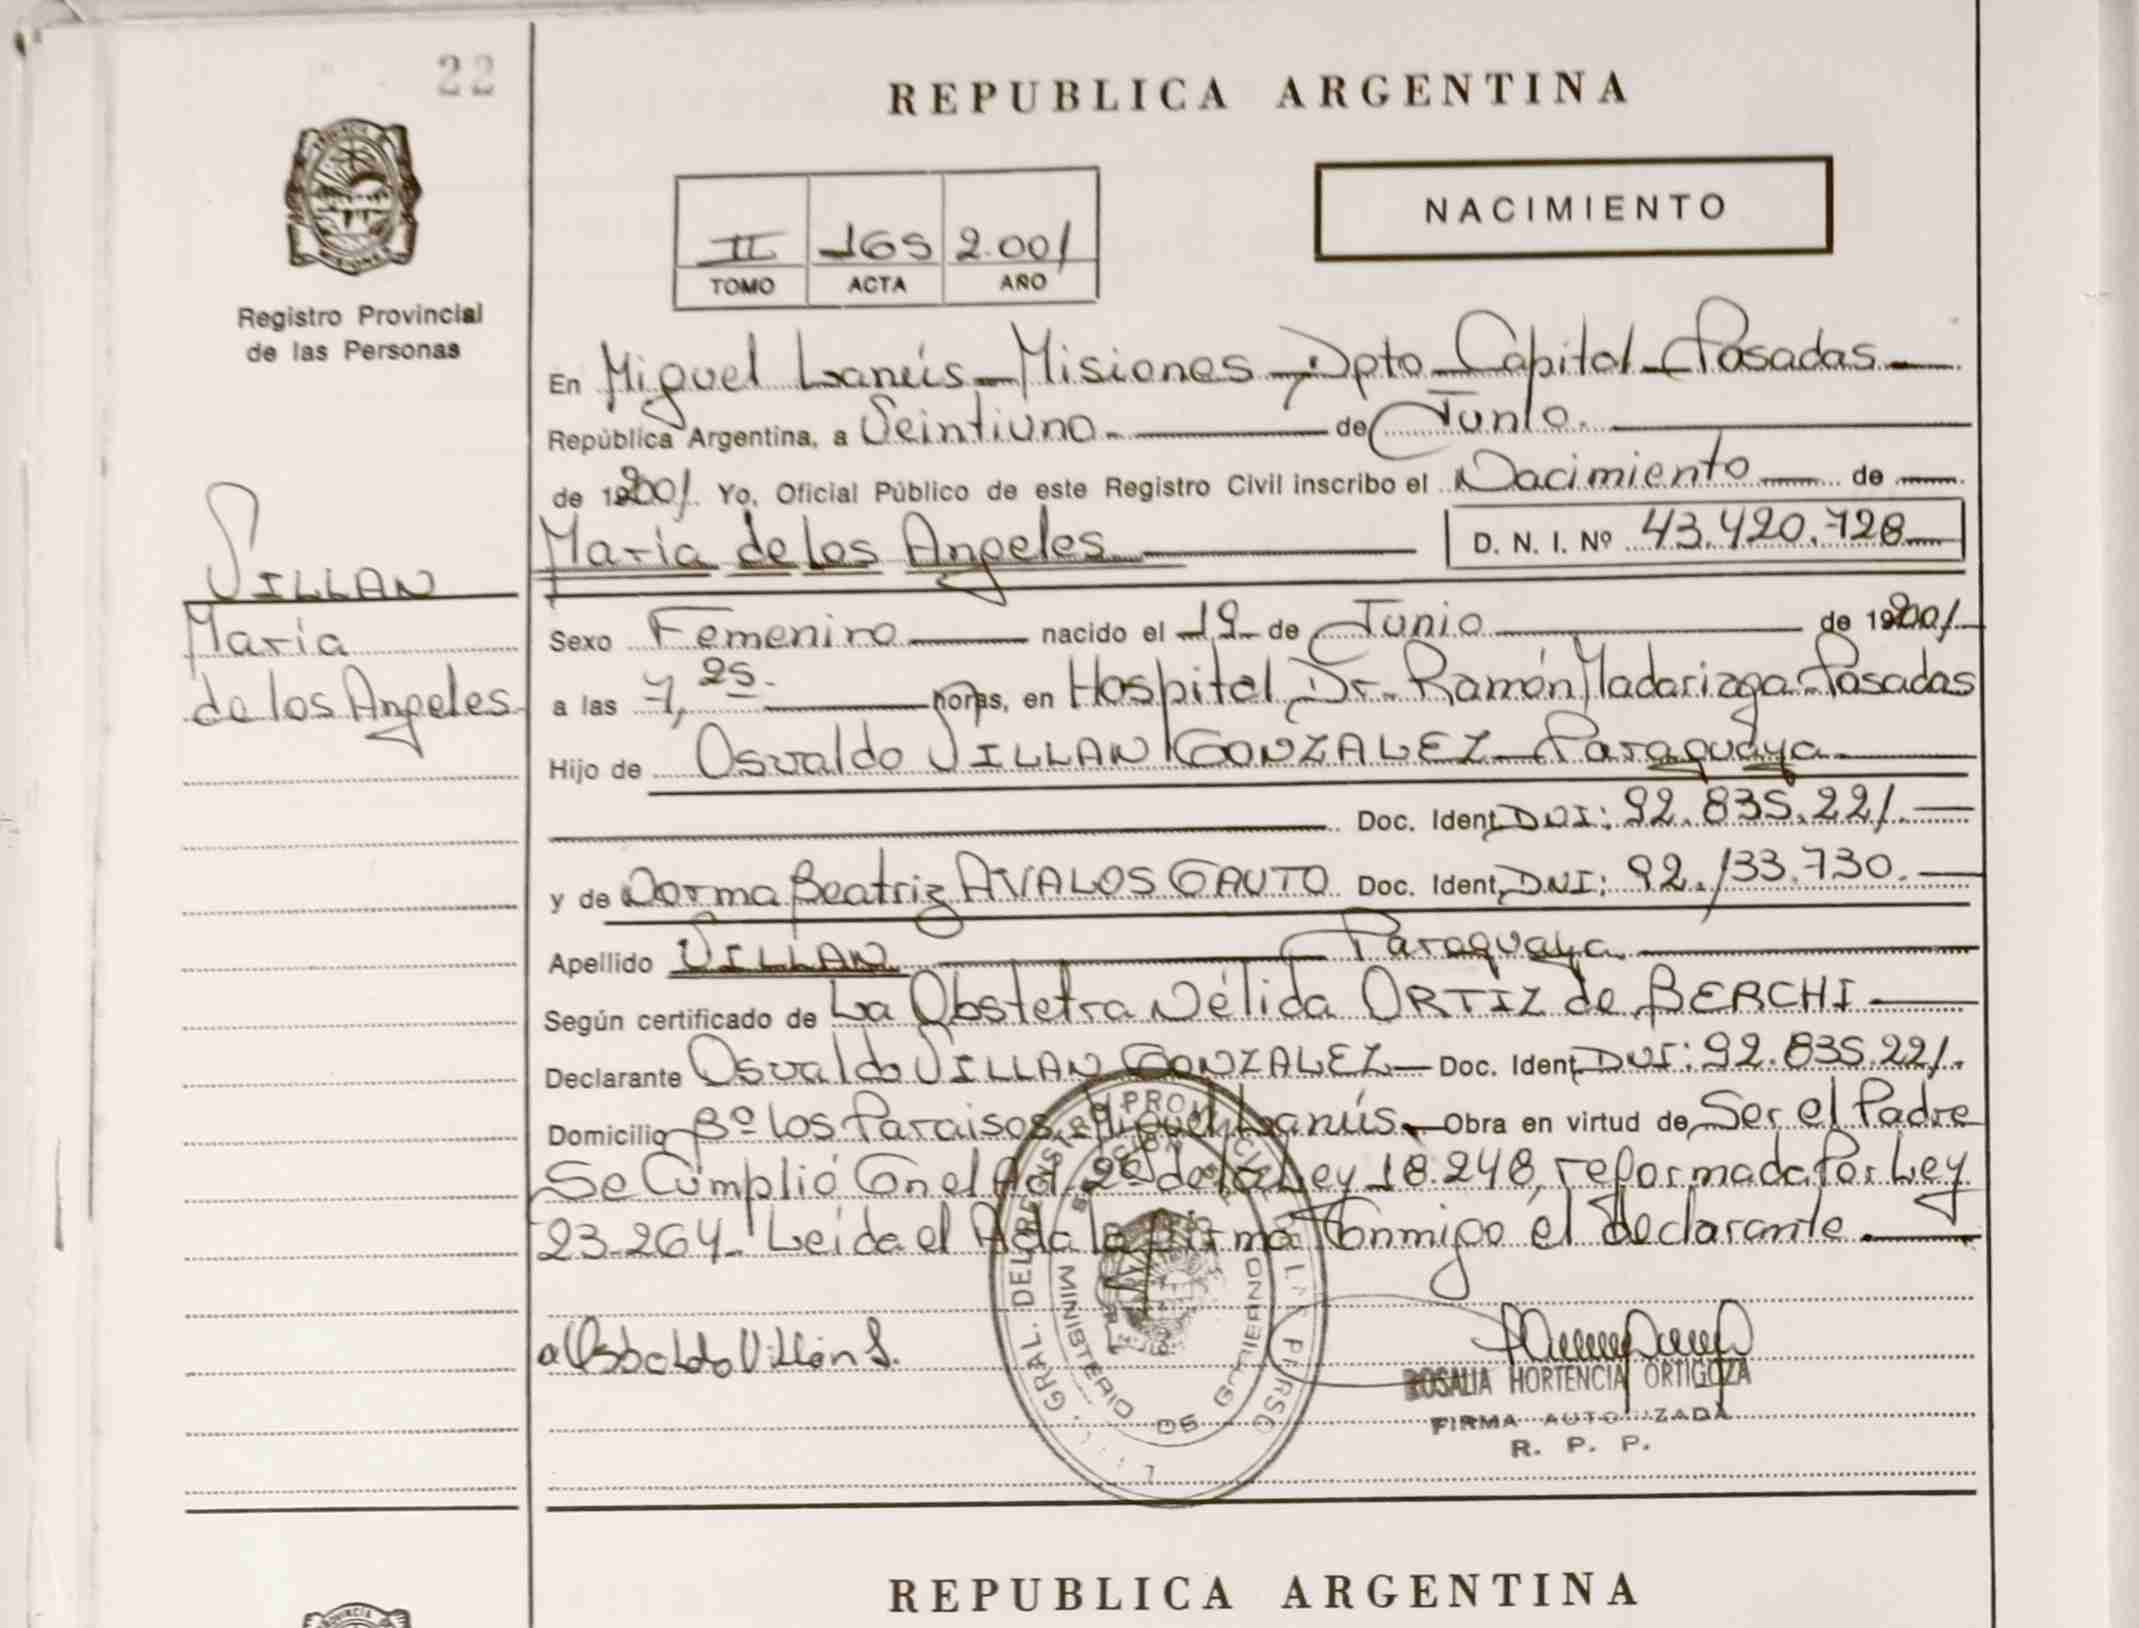 22
REPUBLICA ARGENTINA
NACIMIENTO
II 165 2.001
TOMO ACTA AÑO
Registro Provincial
de las Personas
En Miguel Lanús - Misiones - Dpto Capital - Posadas
República Argentina, a Veintiuno de Junio.
de 2001. Yo, Oficial Público de este Registro Civil inscribo el Nacimiento de
María de los Angeles D. N. I. Nº 43.420.728
VILLAN
María
de los Angeles
Sexo Femenino nacido el 19 de Junio de 2001
a las 7,25. horas, en Hospital Dr. Ramón Madariaga - Posadas
Hijo de Osvaldo VILLAN GONZALEZ - Paraguaya
Doc. Ident. DNI: 92.835.221.
y de Norma Beatriz AVALOS GAUTO Doc. Ident. DNI: 92.133.730.
Apellido VILLAN Paraguaya
Según certificado de La Obstetra Nélida ORTIZ de BERCHI
Declarante Osvaldo VILLAN GONZALEZ - Doc. Ident. DNI: 92.835.221.
Domicilio Bº Los Paraisos. Miguel Lanús. Obra en virtud de Ser el Padre
Se Cumplió Con el Art. 2º de la Ley 18.248, reformada Por Ley
23.264. Leída el Acta la firma Conmigo el declarante.
MINISTERIO DE GOBIERNO
ROSALIA HORTENCIA ORTIGOZA
FIRMA AUTORIZADA
R. P. P.
REPUBLICA ARGENTINA